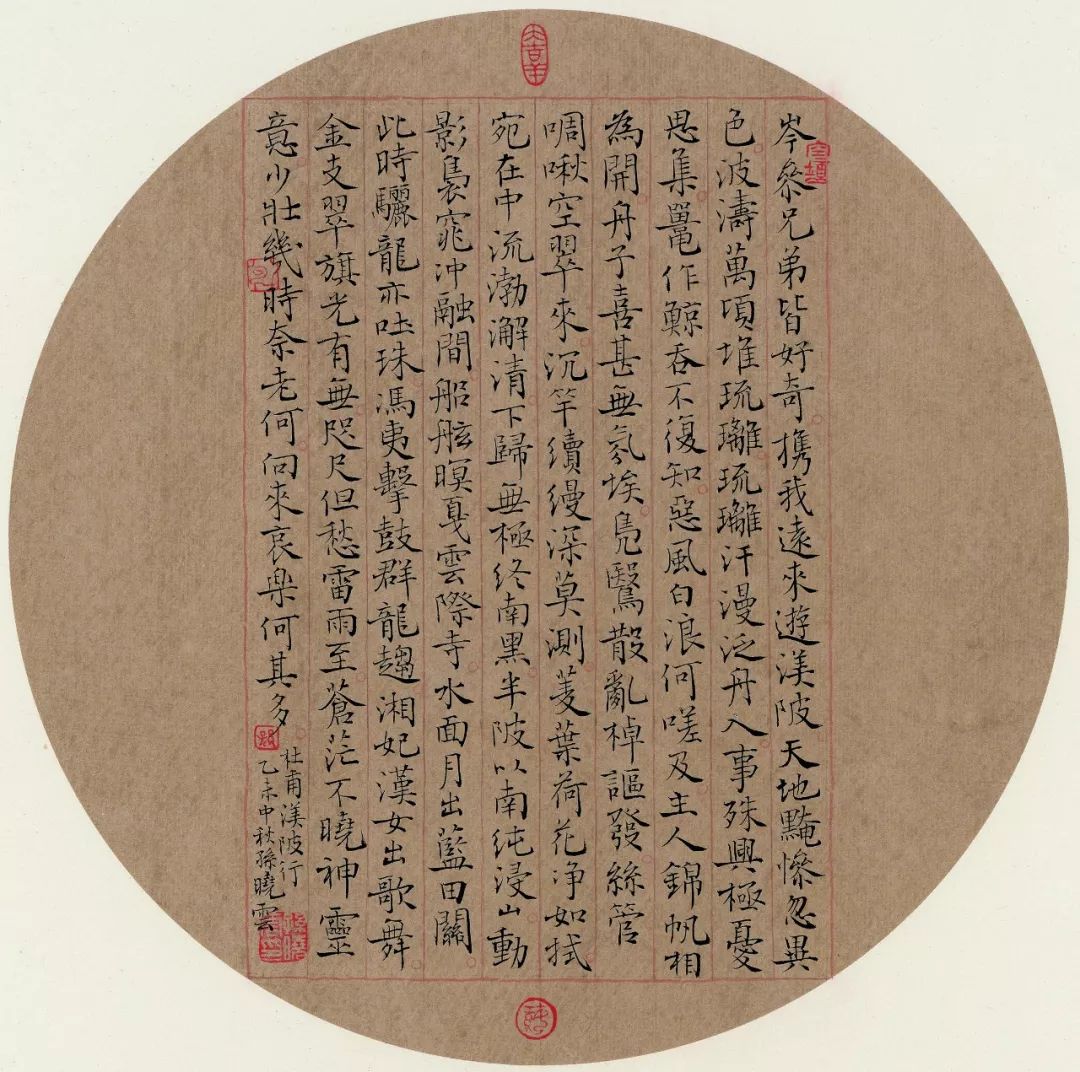 岑參兄弟皆好奇攜我遠來遊渼陂天地黤慘忽異
色波濤萬頃堆琉璃琉璃汗漫泛舟入事殊興極憂
思集鼍作鯨吞不復知惡風白浪何嗟及主人錦帆相
為開舟子喜甚無氛埃鳧鷖散亂棹謳發絲管
啁啾空翠來沉竿續縵深莫測菱葉荷花净如拭
宛在中流渤澥清下歸無極終南黑半陂以南纯浸山動
影裊窕冲融間船舷暝戛雲際寺水面月出藍田關
此時驪龍亦吐珠馮夷擊鼓群龍趨湘妃漢女出歌舞
金支翠旗光有無咫尺但愁雷雨至蒼茫不曉神靈
意少壯幾時奈老何向來哀樂何其多
杜甫渼陂行
乙未中秋孫曉雲